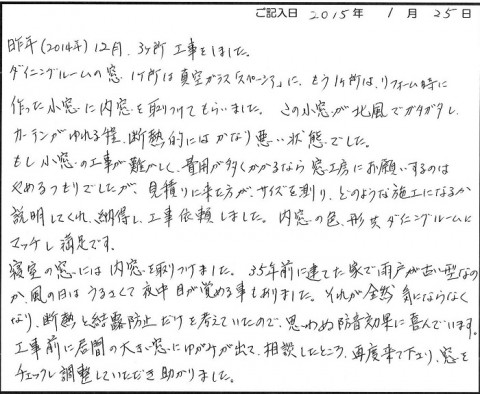 ご記入日 2015年 1月 25日
昨年(2014年)12月、3ヶ所工事をしました。
ダイニングルームの窓 1ヶ所は真空ガラス「スペーシア」に、もう1ヶ所は、リフォーム時に
作った小窓に内窓を取りつけてもらいました。この小窓が北風でガタガタし、
カーテンがゆれる程、断熱的にはかなり悪い状態でした。
もし小窓の工事が難かしく、費用が多くかかるなら窓工房にお願いするのは
やめるつもりでしたが、見積りに来た方がサイズを測り、どのような施工になるか
説明してくれ、納得し、工事依頼しました。内窓の色、形共ダイニングルームに
マッチし満足です。
寝室の窓には内窓を取りつけました。35年前に建てた家で雨戸が古い型なの
か、風の日はうるさくて夜中目が覚める事もありました。それが全然気にならなく
なり、断熱と結露防止だけを考えていたので、思わぬ防音効果に喜んでいます。
工事前に居間の大きい窓にゆがみが出て、相談したところ、再度来て下さり、窓を
チェックし調整していただき助かりました。